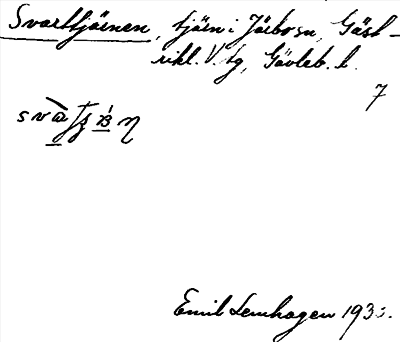 Svarttjärnen, tjärn i Järbo sn, Gäst-
rikl. V. tg, Gävleb. l.
7
Emil Lenhagen 193